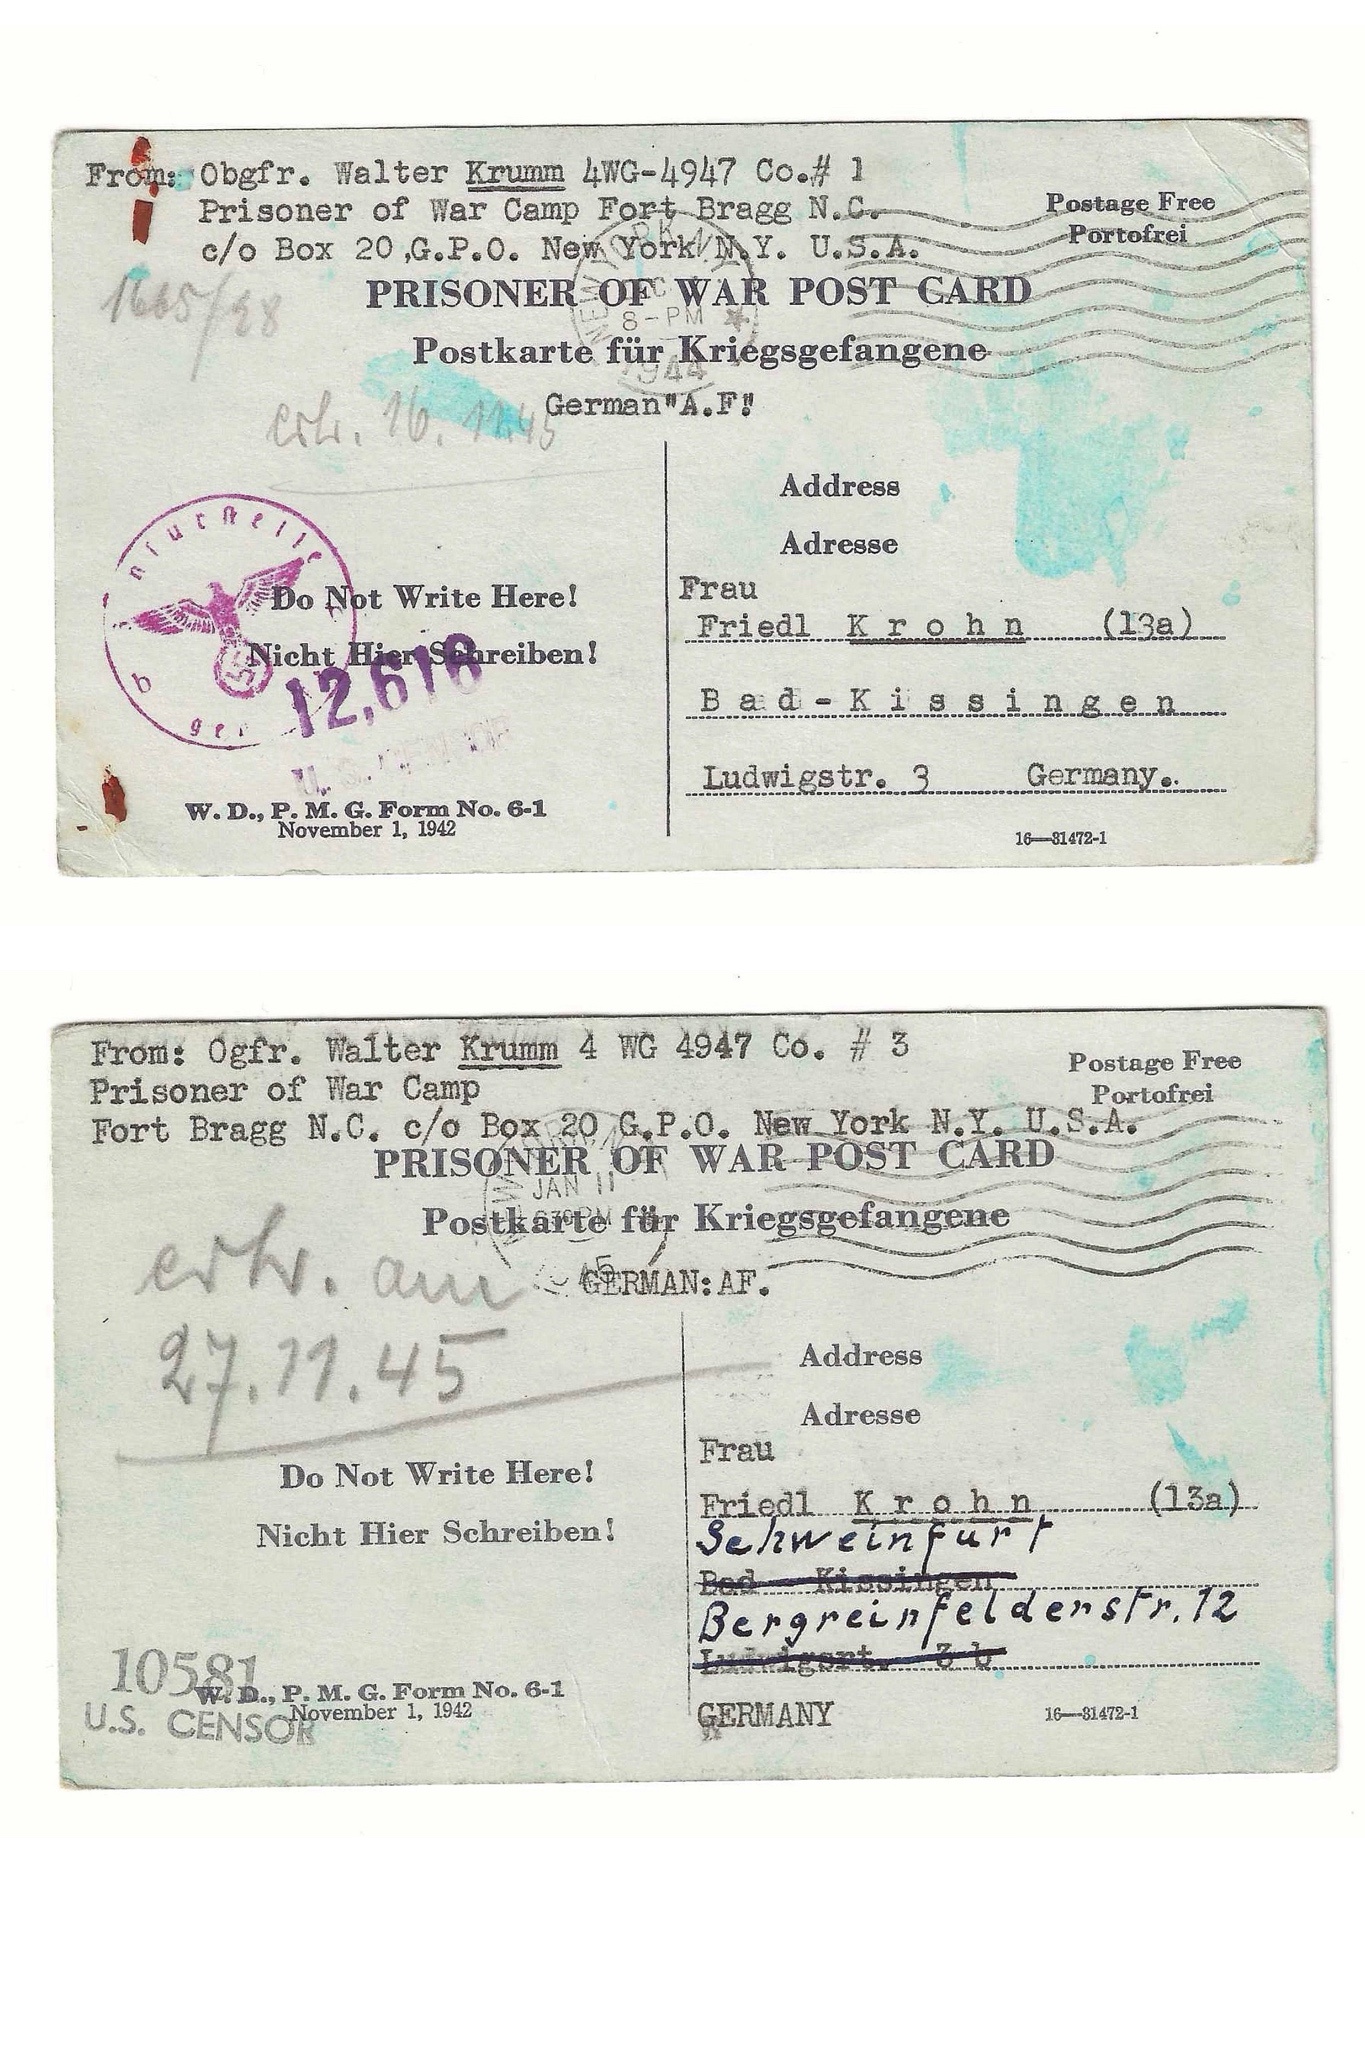 From: Obgfr. Walter Krumm 4WG-4947 Co.# 1
Prisoner of War Camp Fort Bragg N.C.
c/o Box 20,G.P.O. New York N.Y. U.S.A.
Postage Free
Portofrei
PRISONER OF WAR POST CARD
8-PM
1944
Postkarte für Kriegsgefangene
German"A.F."
erh. 16. 11.45
Address
Adresse
Do Not Write Here!
Nicht Hier Schreiben!
12,618
Frau
Friedl Krohn (13a)
Bad-Kissingen
Ludwigstr. 3 Germany.
W. D., P. M. G. Form No. 6-1
November 1, 1942
16—31472-1
From: Ogfr. Walter Krumm 4 WG 4947 Co. # 3
Prisoner of War Camp
Fort Bragg N.C. c/o Box 20 G.P.O. New York N.Y. U.S.A.
Postage Free
Portofrei
PRISONER OF WAR POST CARD
JAN 11
Postkarte für Kriegsgefangene
GERMAN:AF.
erh. am
27.11.45
Address
Adresse
Do Not Write Here!
Nicht Hier Schreiben!
Frau
Friedl Krohn (13a)
Schweinfurt
Bad - Kissingen
Bergreinfelderstr. 12
Ludwigsrt. 3 b
GERMANY
10581
U.S. CENSOR
W. D., P. M. G. Form No. 6-1
November 1, 1942
16—31472-1